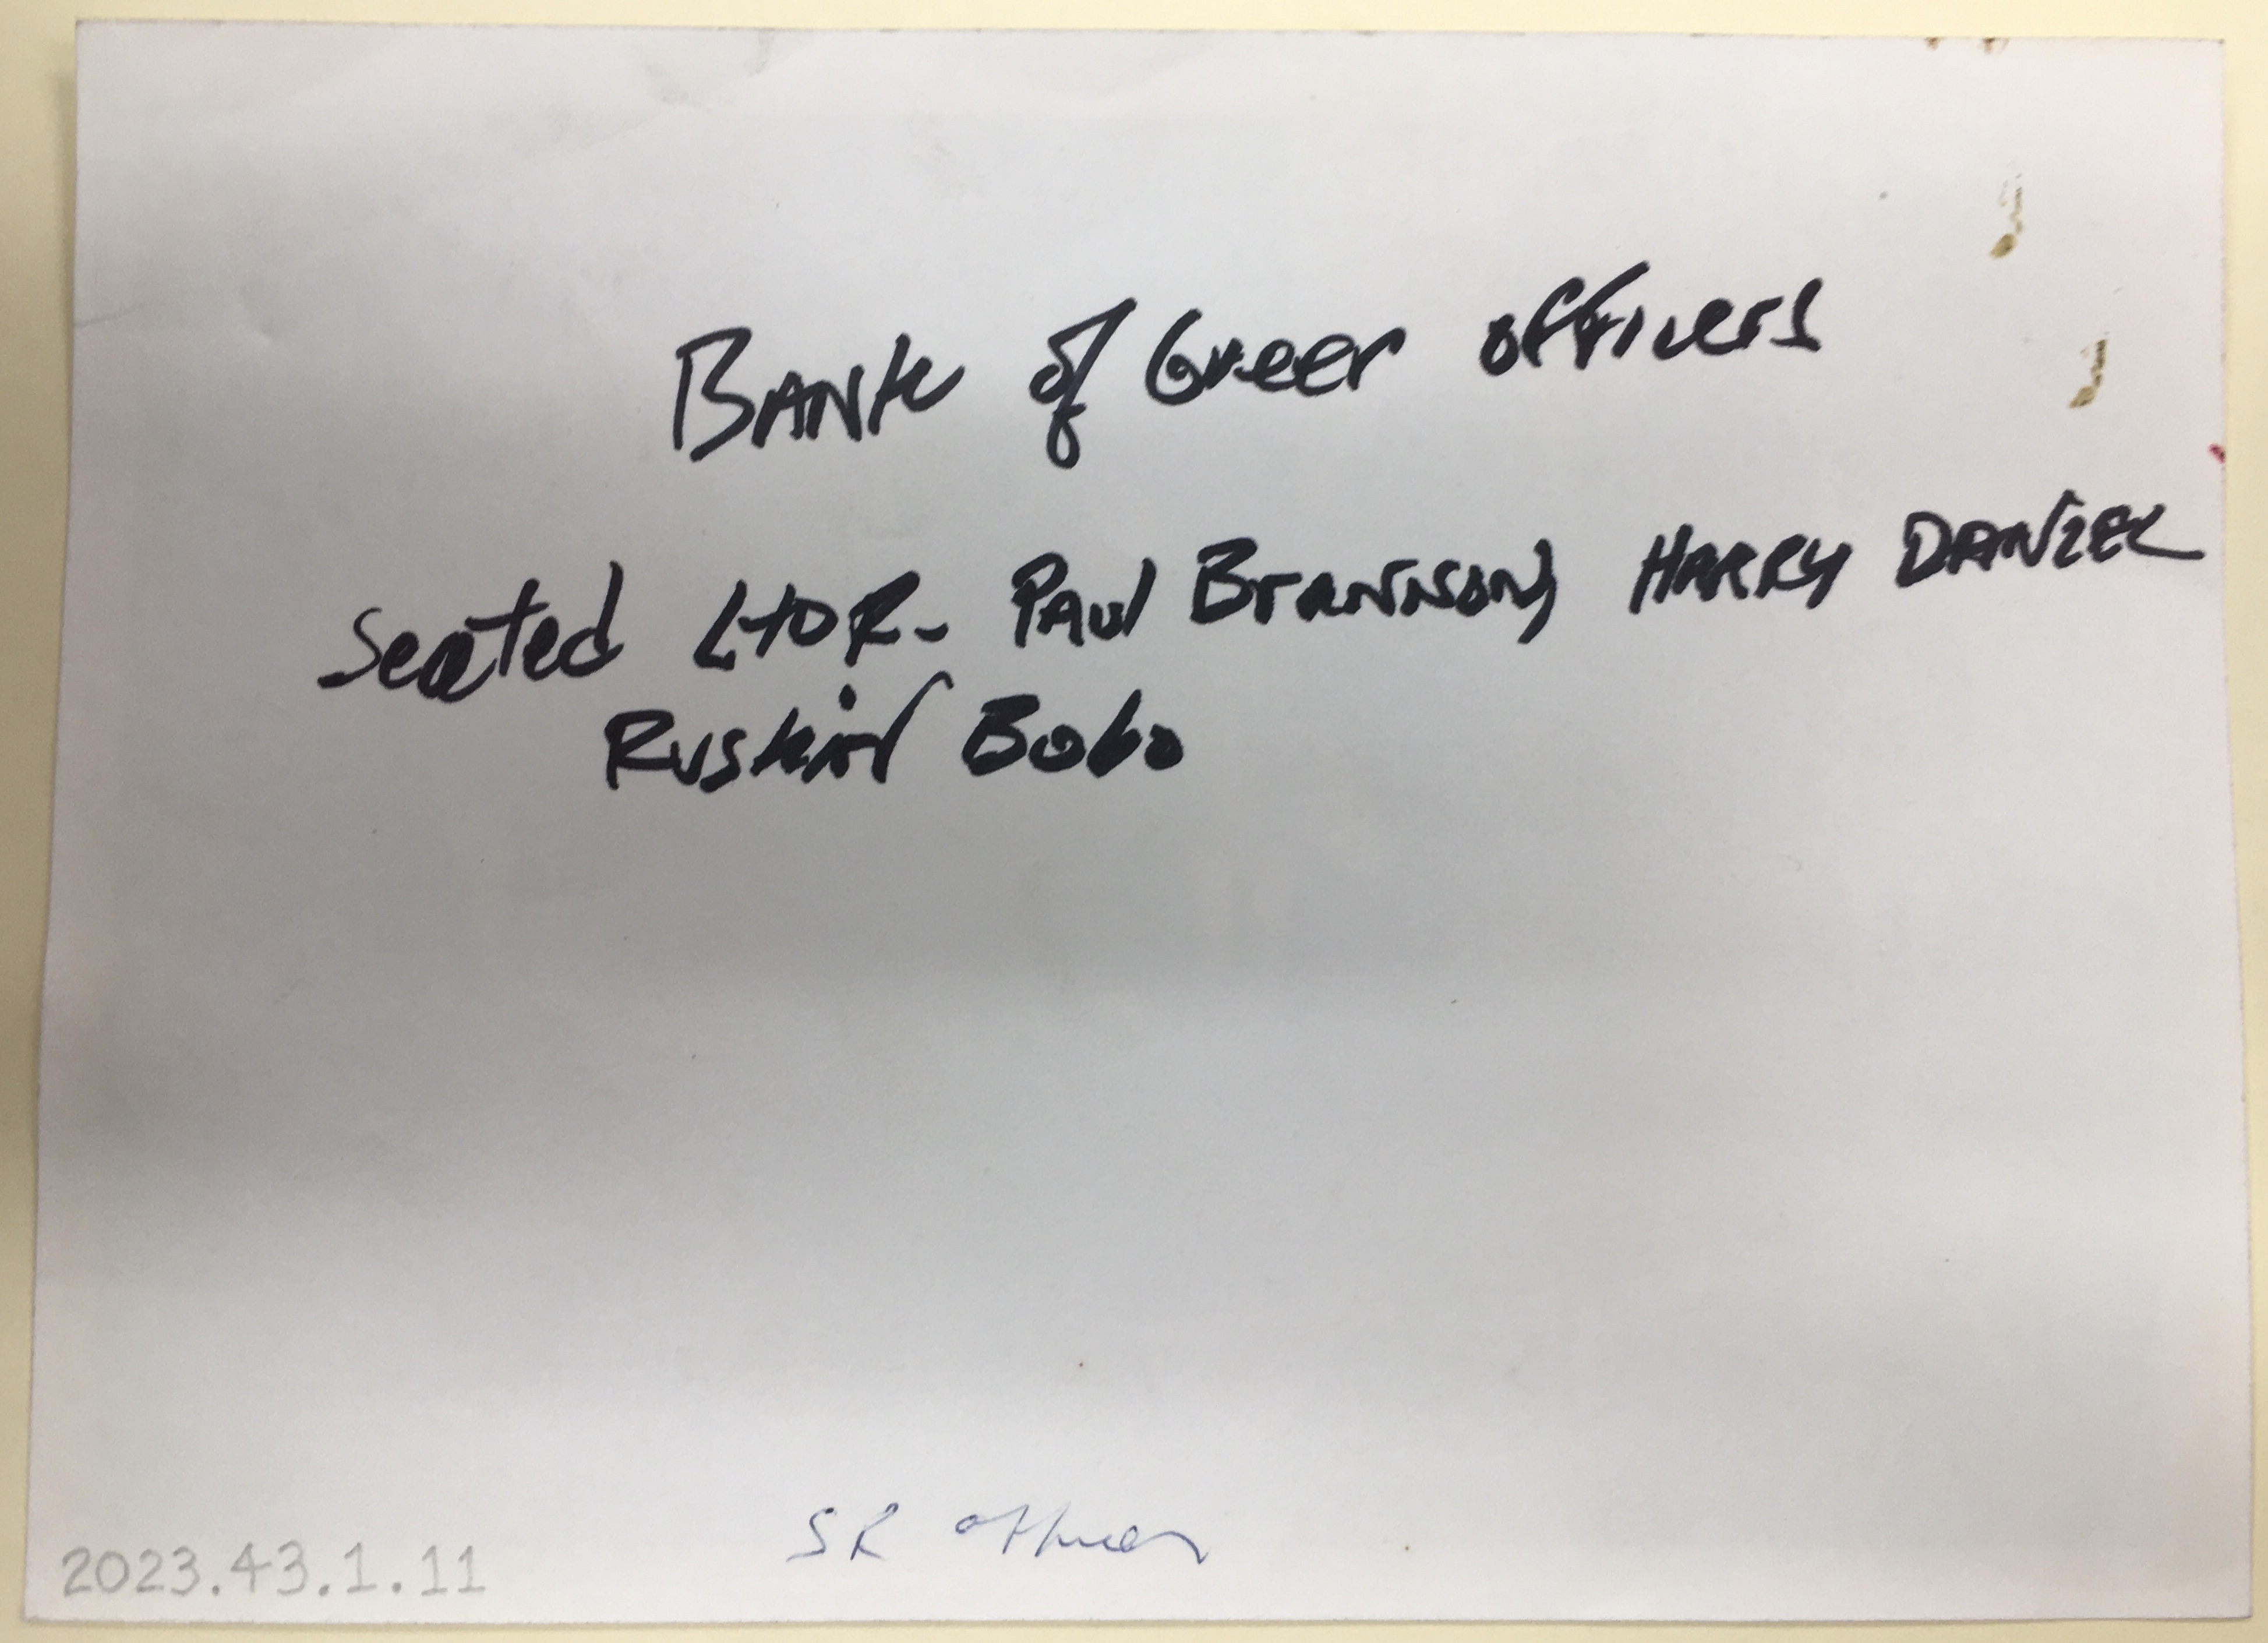 BANK of Greer officers
Seated LTOR- PAul BrANNSON, HARRY DANZEL
RUSkiN Bobo
SR officer
2023.43.1.11